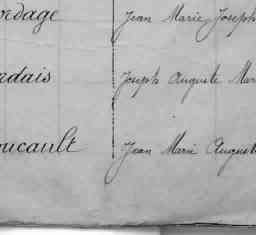 ordage Jean Marie Joseph
rdais Joseph Auguste Mar
oucault Jean Marie Auguste